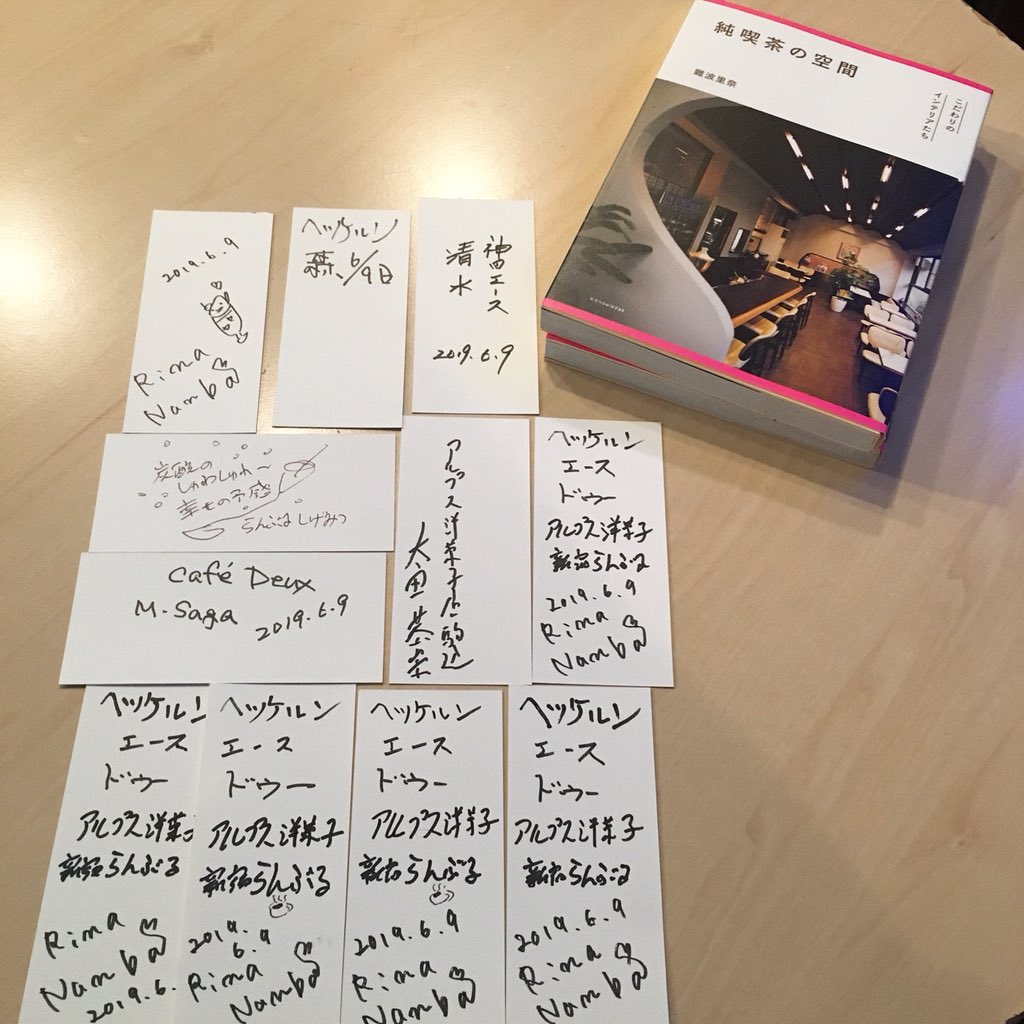 純喫茶の空間
難波里奈
こだわりの
インテリアたち
X-Knowledge
2019.6.9
Rima
Namba
ヘッケルン
森 6/9日
神田エース
清水
2019.6.9
炭酸の
しゅわしゅわ〜
幸せの予感
らんぶる しげみつ
アルプス洋菓子店駒込
太田恭崇
ヘッケルン
エース
ドゥー
アルプス洋菓子
新宿らんぶる
2019.6.9
Rima
Namba
Café Deux
M.Saga
2019.6.9
ヘッケルン
エース
ドゥー
アルプス洋菓子
新宿らんぶる
Rima
Namba
2019.6.
ヘッケルン
エース
ドゥー
アルプス洋菓子
新宿らんぶる
2019.
6.9
Rima
Namba
ヘッケルン
エース
ドゥー
アルプス洋菓子
新宿らんぶる
2019.6.9
Rima
Namba
ヘッケルン
エース
ドゥー
アルプス洋菓子
新宿らんぶる
2019.6.9
Rima
Namba